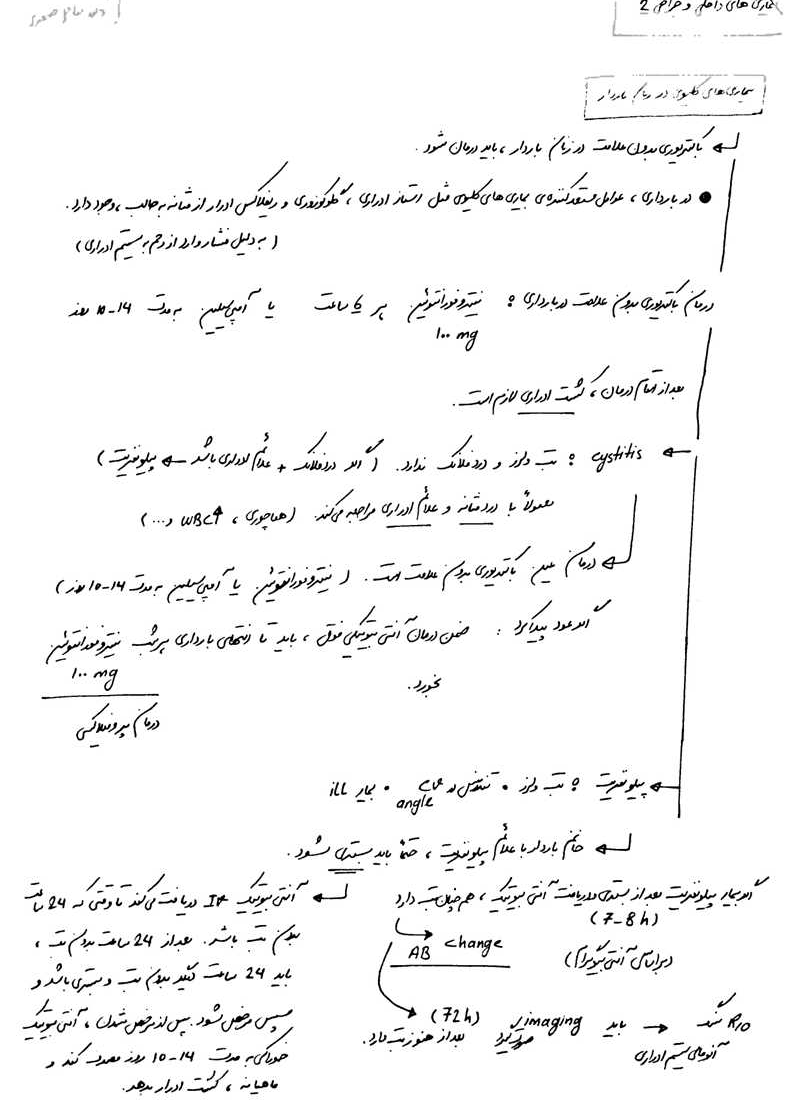 بیماری های داخلی و جراحی 2
بیماری های کلیوی در زنان باردار
باکتریوری بدون علامت در زنان باردار ، باید درمان شود .
● در بارداری ، عوامل مستعد کننده ی بیماری های کلیوی مثل استاز ادراری ، گلوکوزوری و ریفلاکس ادرار از مثانه به حالب ، وجود دارد .
( به دلیل فشار وارد از رحم به سیستم ادراری )
درمان باکتریوری بدون علامت در بارداری : نیتروفورانتوئین هر 6 ساعت یا آمپی سیلین به مدت 14-10 روز
100 mg
بعد از اتمام درمان ، کشت ادراری لازم است .
← cystitis : تب و لرز و درد فلانک ندارد . ( اگر درد فلانک + علائم ادراری باشد ← پیلونفریت )
معمولاً با درد مثانه و علائم ادراری مراجعه می کند . ( هماچوری ، WBC↑ و ... )
درمان عین باکتریوری بدون علامت است . ( نیتروفورانتوئین یا آمپی سیلین به مدت 14-10 روز )
اگر عود پیدا کرد : ضمن درمان آنتی بیوتیکی فوق ، باید تا انتهای بارداری هر شب نیتروفورانتوئین
100 mg
بخورد .
درمان پروفیلاکسی
← پیلونفریت : تب و لرز • تندرنس در CVA angle • بیمار ill
خانم باردار با علائم پیلونفریت ، حتماً باید بستری شود .
← آنتی بیوتیک IV دریافت می کند تا وقتی که 24 ساعت
بدون تب باشد . بعد از 24 ساعت بدون تب ،
باید 24 ساعت دیگر بدون تب و بستری باشد و
سپس مرخص شود . پس از مرخص شدن ، آنتی بیوتیک
خوراکی به مدت 14-10 روز مصرف کند و
ماهیانه ، کشت ادرار بدهد .
اگر بیمار پیلونفریت بعد از بستری و دریافت آنتی بیوتیک ، همچنان تب دارد
(7-8 h)
AB change
( بر اساس آنتی بیوگرام )
(72h) بعد از هنوز تب دارد .
باید imaging صورت گیرد → R/O سنگ
آنومالی سیستم ادراری